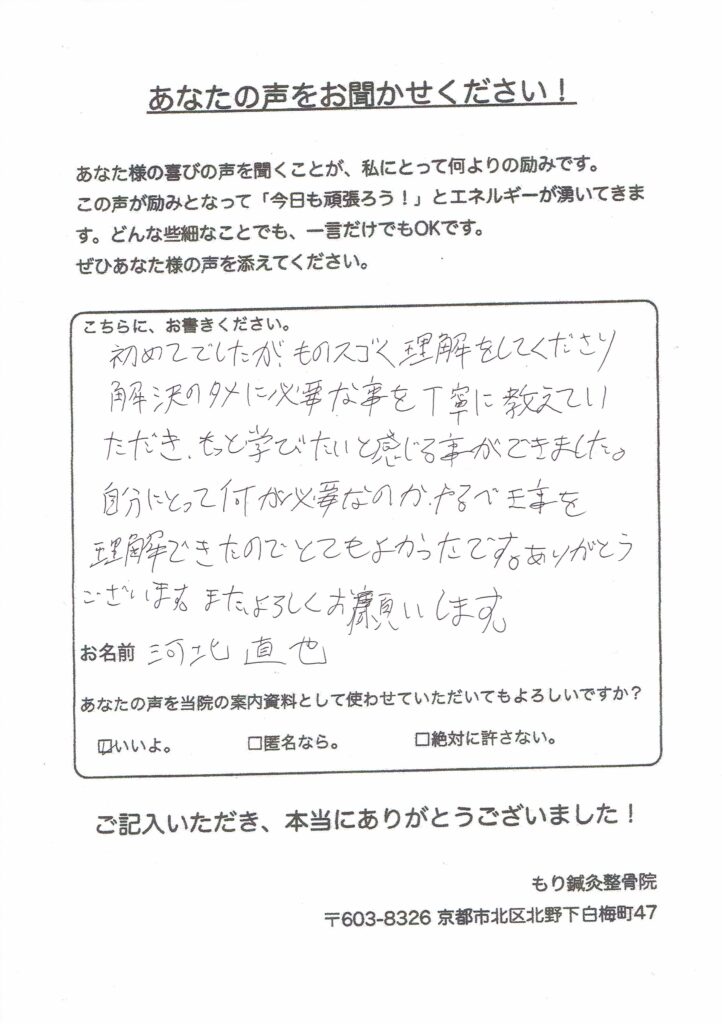 あなたの声をお聞かせください！
あなた様の喜びの声を聞くことが、私にとって何よりの励みです。
この声が励みとなって「今日も頑張ろう！」とエネルギーが湧いてきま
す。どんな些細なことでも、一言だけでもOKです。
ぜひあなた様の声を添えてください。
こちらに、お書きください。
初めてでしたが、ものスゴく理解をしてくださり
解決のタメに必要な事を丁寧に教えてい
ただき、もっと学びたいと感じる事ができました。
自分にとって何が必要なのか、やるべき事を
理解できたのでとてもよかったです。ありがとう
ございます。また、よろしくお願いします。
お名前 河北 直也
あなたの声を当院の案内資料として使わせていただいてもよろしいですか？
☑いいよ。 □匿名なら。 □絶対に許さない。
ご記入いただき、本当にありがとうございました！
もり鍼灸整骨院
〒603-8326 京都市北区北野下白梅町47